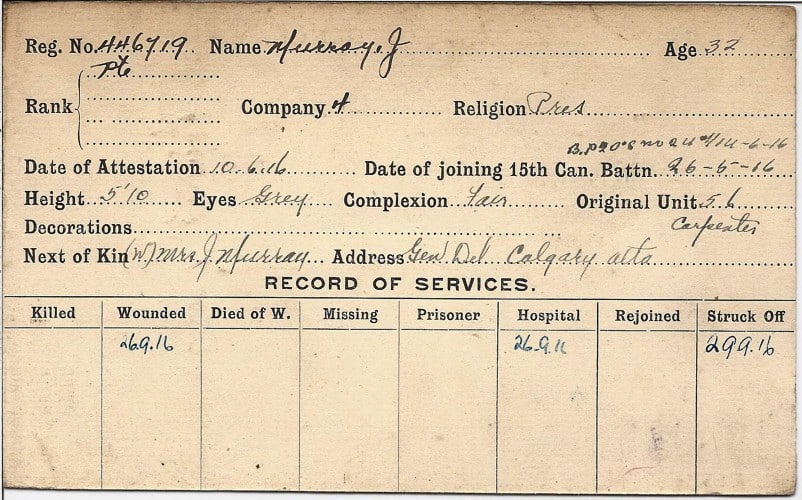 Reg. No. 446719 Name Murray. J Age 32
Rank Pte
Company 4 Religion Pres
14-6-16
Date of Attestation 10.6.16 Date of joining 15th Can. Battn. 26-5-16
Height 5'10 Eyes Grey Complexion Fair Original Unit 56
Decorations Carpenter
Next of Kin (W) Mrs. J Murray Address Gen Del Calgary alta
RECORD OF SERVICES.
Killed Wounded Died of W. Missing Prisoner Hospital Rejoined Struck Off
26.9.16 26.9.16 29.9.16